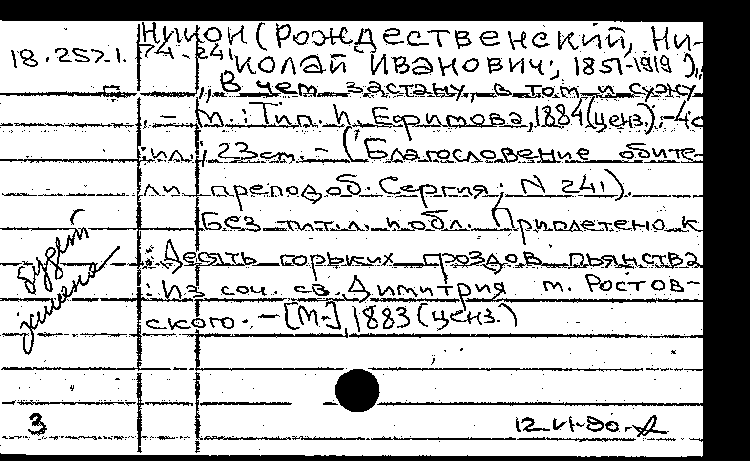 Никон (Рождественский, Ни-
18.257.1. 74-241 колай Иванович; 1851-1919).
„В чем застану, в том и сужу
. – М.: Тип. И. Ефимова, 1884 (ценз.). – 4с
: ил.; 23см. – (Благословение обите-
ли преподоб. Сергия; N 241).
Без тит.л. и обл. Приплетено к
: Десять горьких гроздов пьянства
: Из соч. св. Димитрия м. Ростов-
ского. – [М.], 1883 (ценз.)
будет
3
12.VI.80.